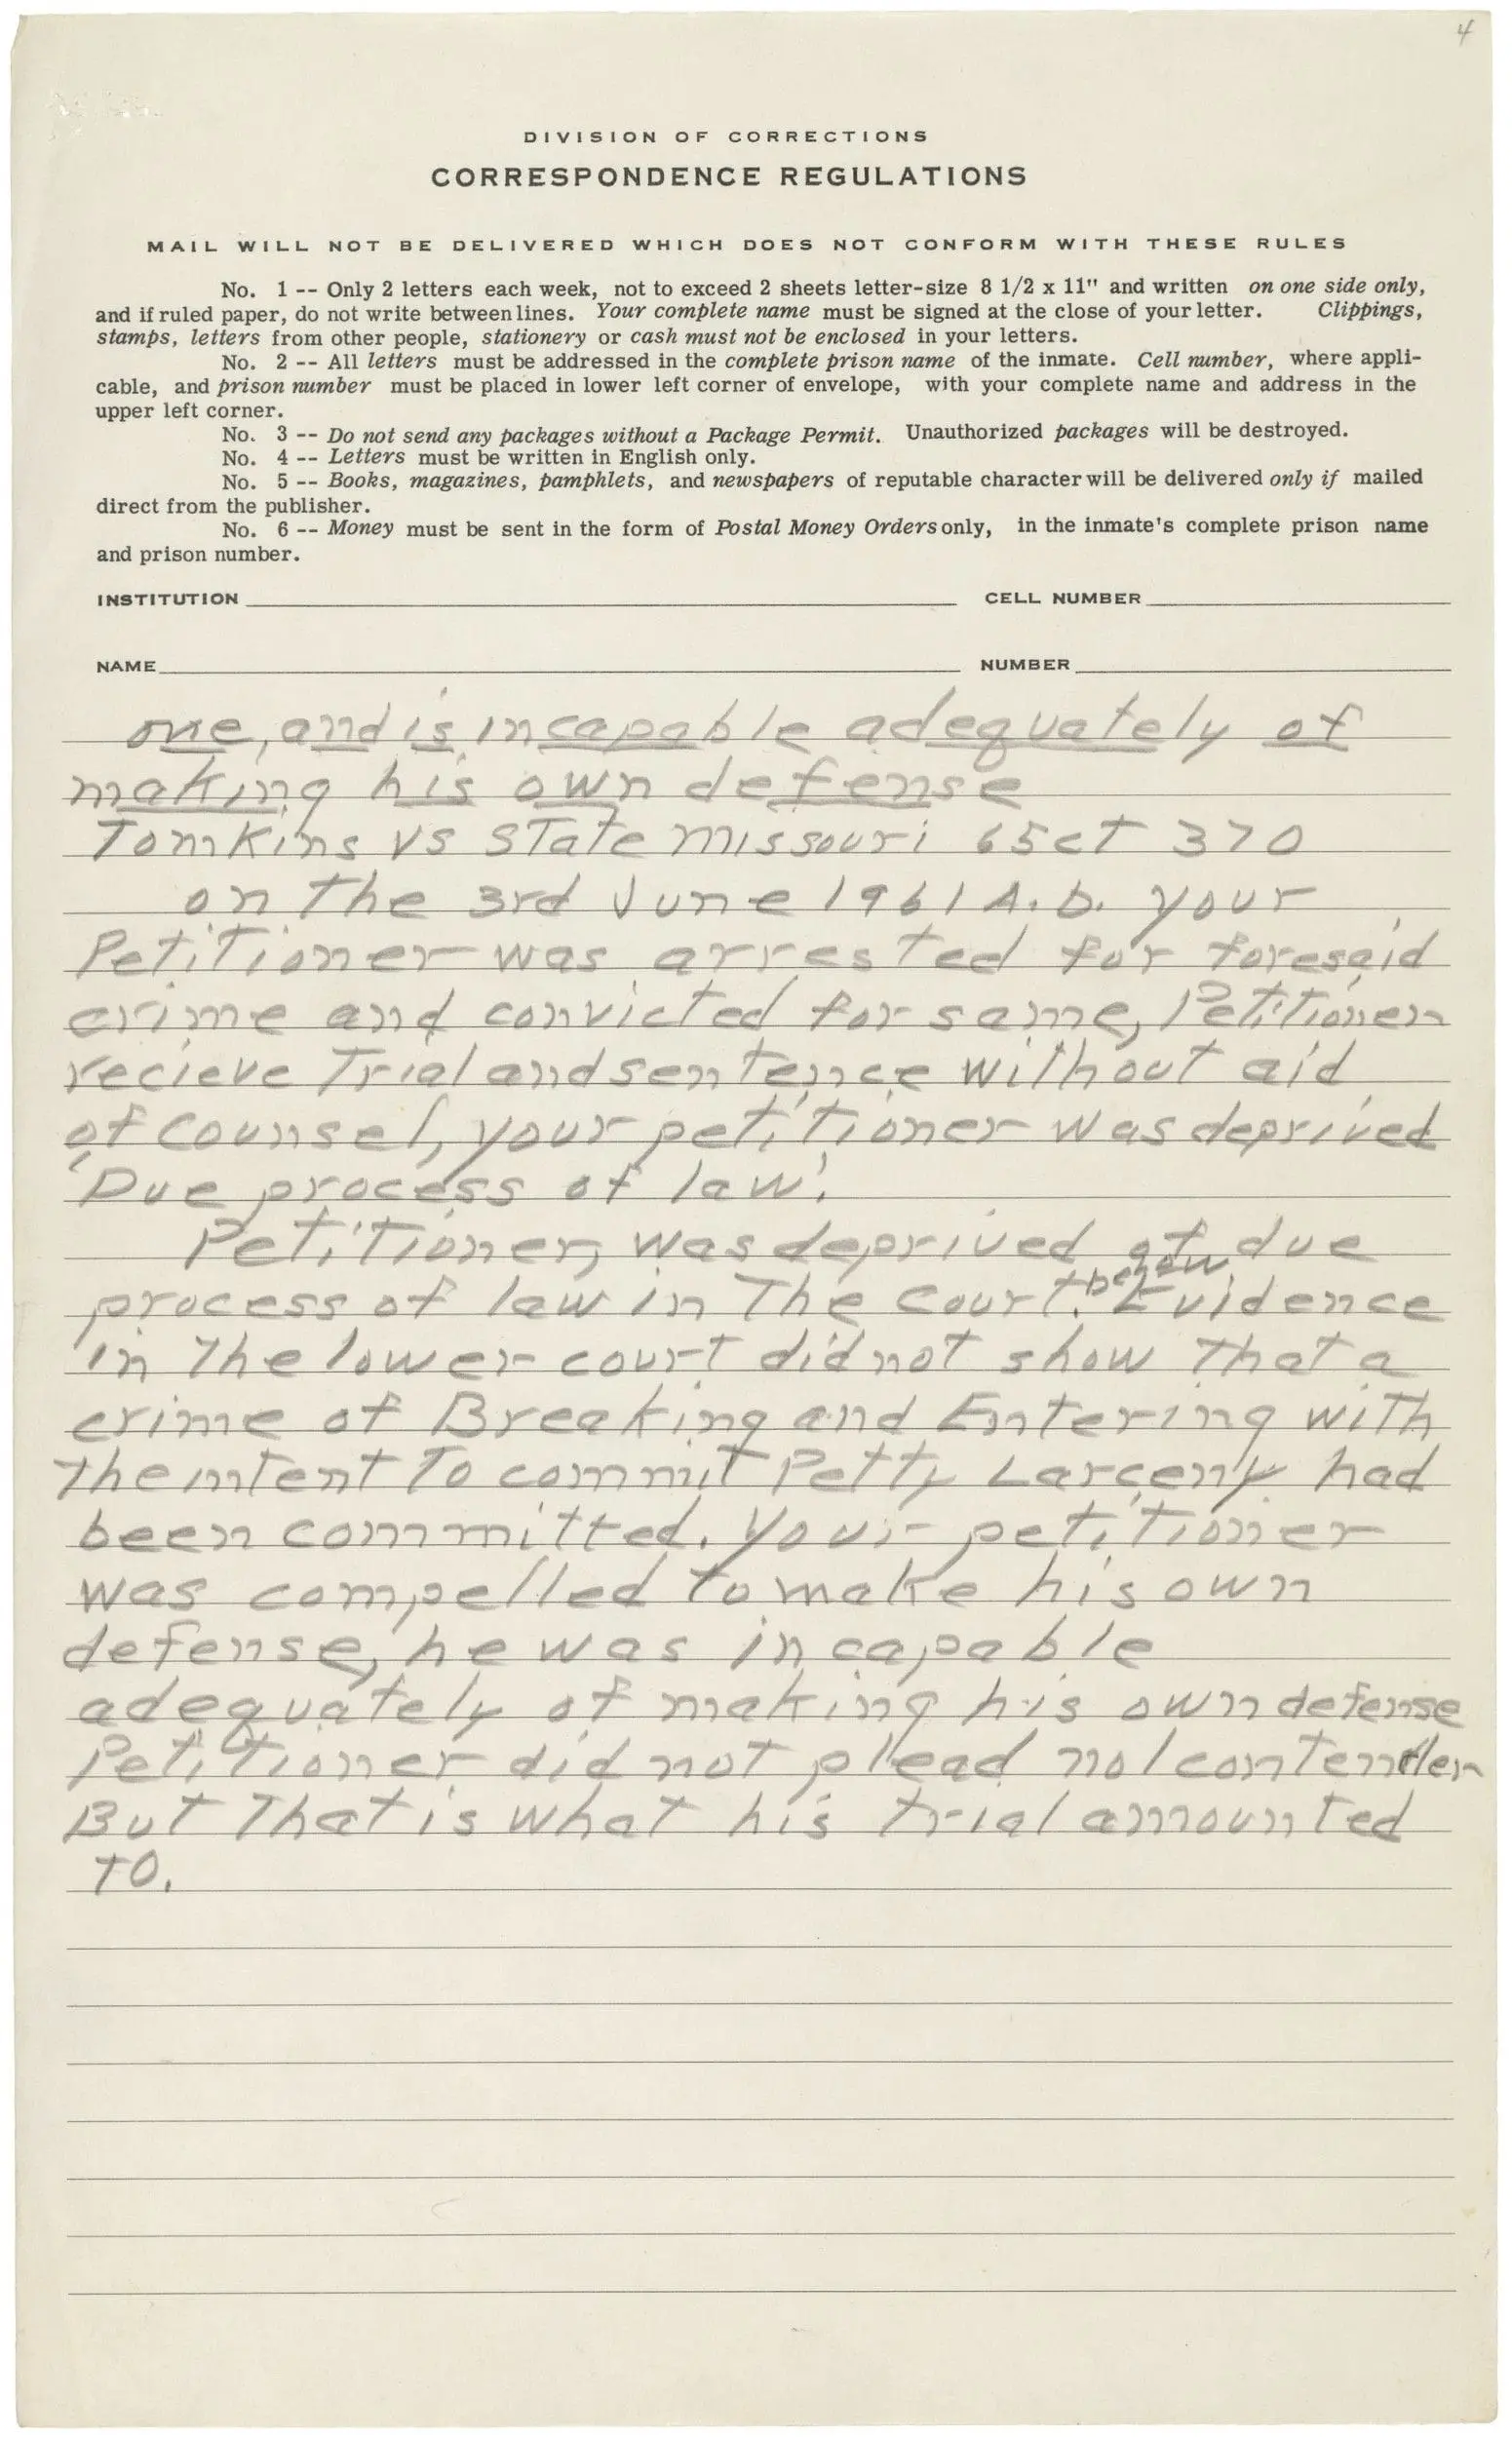 4
DIVISION OF CORRECTIONS
CORRESPONDENCE REGULATIONS
MAIL WILL NOT BE DELIVERED WHICH DOES NOT CONFORM WITH THESE RULES
No. 1 -- Only 2 letters each week, not to exceed 2 sheets letter-size 8 1/2 x 11" and written on one side only,
and if ruled paper, do not write between lines. Your complete name must be signed at the close of your letter. Clippings,
stamps, letters from other people, stationery or cash must not be enclosed in your letters.
No. 2 -- All letters must be addressed in the complete prison name of the inmate. Cell number, where appli-
cable, and prison number must be placed in lower left corner of envelope, with your complete name and address in the
upper left corner.
No. 3 -- Do not send any packages without a Package Permit. Unauthorized packages will be destroyed.
No. 4 -- Letters must be written in English only.
No. 5 -- Books, magazines, pamphlets, and newspapers of reputable character will be delivered only if mailed
direct from the publisher.
No. 6 -- Money must be sent in the form of Postal Money Orders only, in the inmate's complete prison name
and prison number.
INSTITUTION CELL NUMBER
NAME NUMBER
one, and is incapable adequately of
making his own defense
Tomkins vs State Missouri 65ct 370
on the 3rd June 1961 A.D. your
Petitioner was arrested for foresaid
crime and convicted for same, Petitioner
recieve trial and sentence without aid
of counsel, your petitioner was deprived
'Due process of law'.
Petitioner, was deprived of due
process of law in the court below. Evidence
in the lower court did not show that a
crime of Breaking and Entering with
the intent to commit Petty Larceny had
been committed. Your petitioner
was compelled to make his own
defense, he was incapable
adequately of making his own defense
Petitioner did not plead nol contender
But that is what his trial amounted
to.